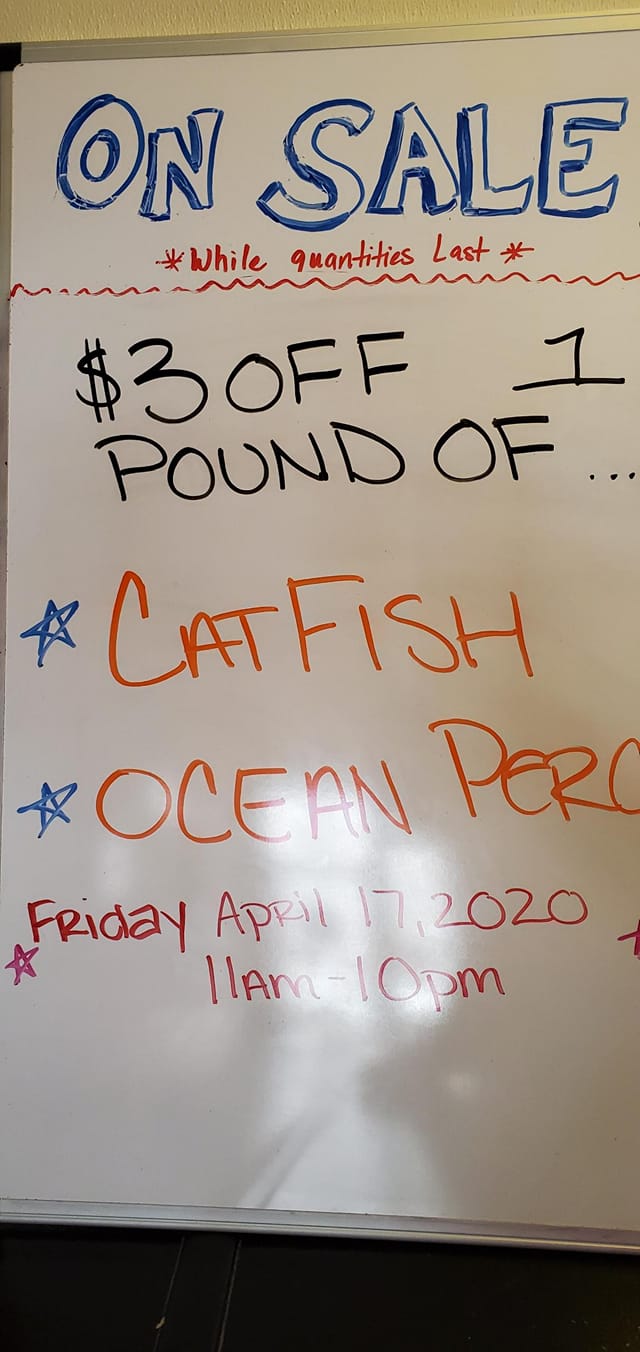 ON SALE
*While quantities Last*
$3 OFF 1
POUND OF ...
CATFISH
OCEAN PERC
Friday April 17, 2020
11am-10pm